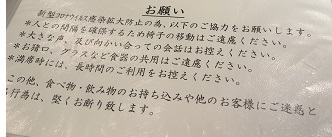 お願い
新型コロナウイルス感染拡大防止の為、以下のご協力をお願いします。
*人との間隔を確保するため椅子の移動はご遠慮ください。
*大きな声、及び向かい合っての会話はお控えください。
*お猪口、グラスなど食器の共用はご遠慮ください。
*満席時には、長時間のご利用をお控えください。
この他、食べ物・飲み物のお持ち込みや他のお客様にご迷惑と
行為は、堅くお断り致します。